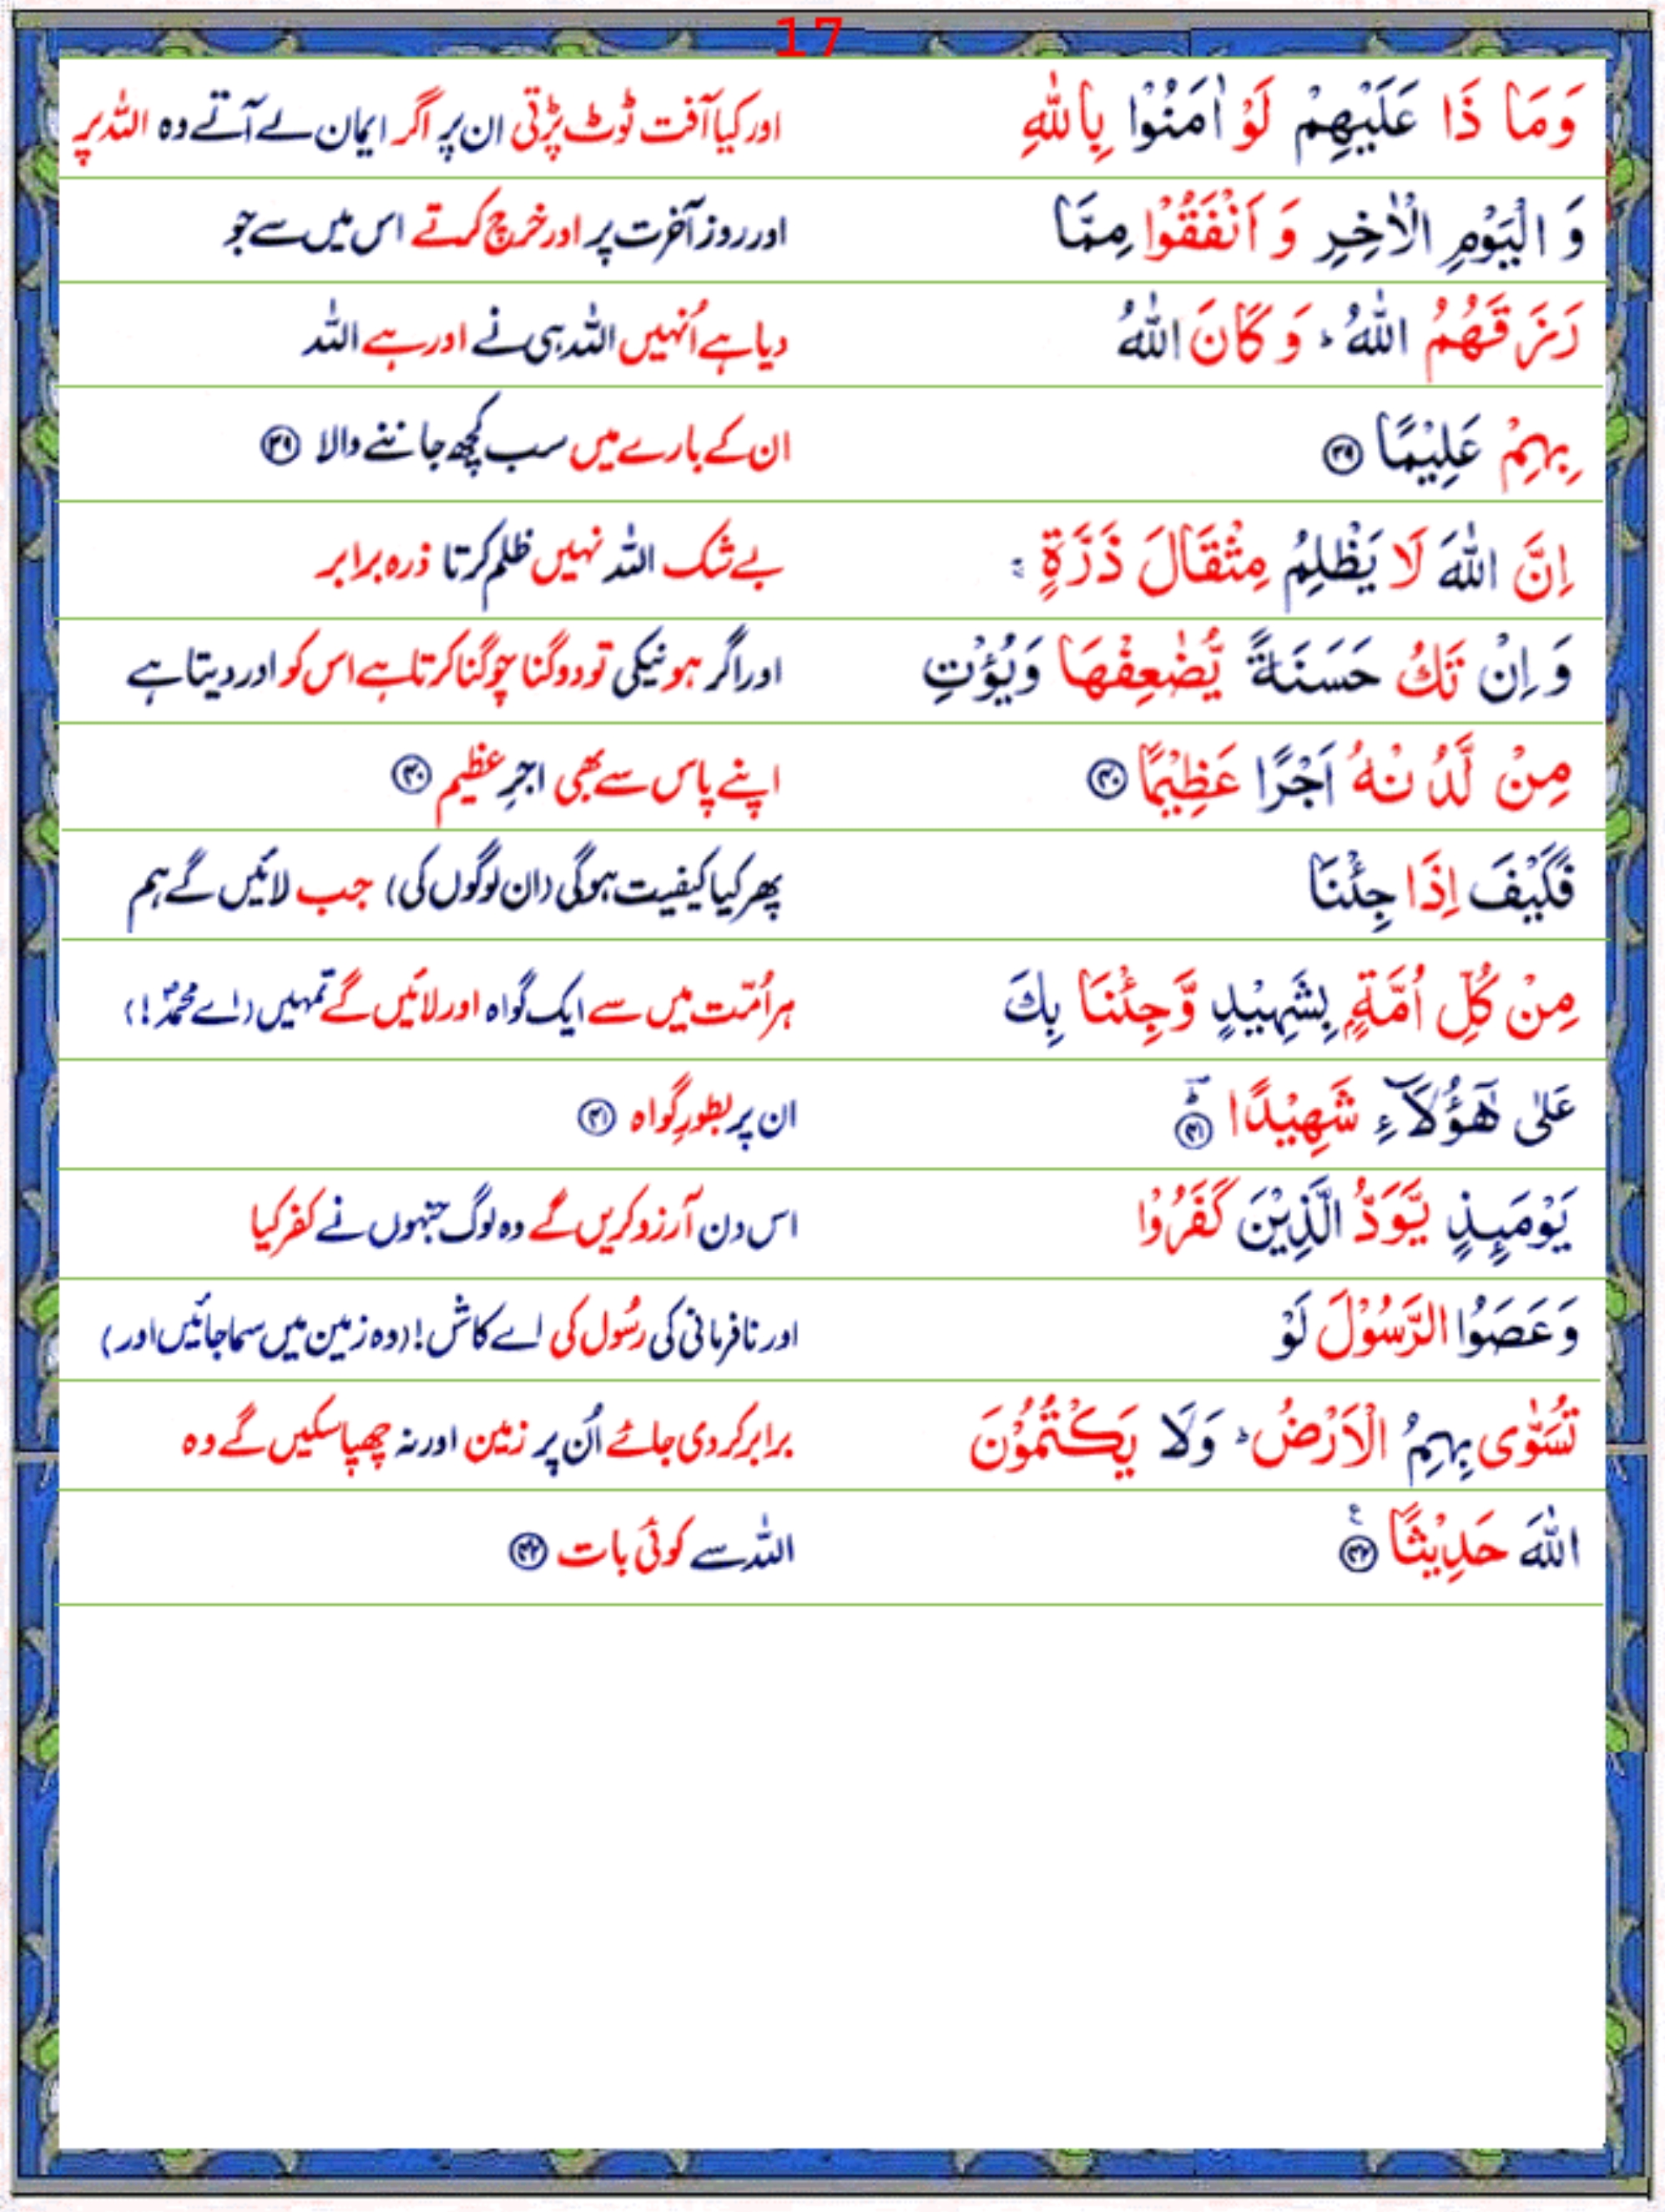 17
وَمَا ذَا عَلَيْهِمْ لَوْ اٰمَنُوْا بِاللّٰهِ اور کیا آفت ٹوٹ پڑتی ان پر اگر ایمان لے آتے وہ اللہ پر
وَ الْيَوْمِ الْاٰخِرِ وَ اَنْفَقُوْا مِمَّا اور روز آخرت پر اور خرچ کرتے اس میں سے جو
رَزَقَهُمُ اللّٰهُ ؕ وَ كَانَ اللّٰهُ دیا ہے اُنہیں اللہ ہی نے اور ہے اللہ
بِهِمْ عَلِيْمًا ۳۹ ان کے بارے میں سب کچھ جاننے والا ۳۹
اِنَّ اللّٰهَ لَا يَظْلِمُ مِثْقَالَ ذَرَّةٍ ۚ بے شک اللہ نہیں ظلم کرتا ذرہ برابر
وَ اِنْ تَكُ حَسَنَةً يُّضٰعِفْهَا وَيُؤْتِ اور اگر ہو نیکی تو دوگنا چوگنا کرتا ہے اس کو اور دیتا ہے
مِنْ لَّدُنْهُ اَجْرًا عَظِيْمًا ۴۰ اپنے پاس سے بھی اجرِ عظیم ۴۰
فَكَيْفَ اِذَا جِئْنَا پھر کیا کیفیت ہوگی (ان لوگوں کی) جب لائیں گے ہم
مِنْ كُلِّ اُمَّةٍۭ بِشَهِيْدٍ وَّجِئْنَا بِكَ ہر اُمّت میں سے ایک گواہ اور لائیں گے تمہیں (اے محمدؐ!)
عَلٰى هٰٓؤُلَآءِ شَهِيْدًا ؕ ۴۱ ان پر بطورِ گواہ ۴۱
يَوْمَىِٕذٍ يَّوَدُّ الَّذِيْنَ كَفَرُوْا اس دن آرزو کریں گے وہ لوگ جنہوں نے کفر کیا
وَعَصَوُا الرَّسُوْلَ لَوْ اور نافرمانی کی رسُول کی اے کاش! (وہ زمین میں سما جائیں اور)
تُسَوّٰى بِهِمُ الْاَرْضُ ؕ وَلَا يَكْتُمُوْنَ برابر کر دی جائے اُن پر زمین اور نہ چھپا سکیں گے وہ
اللّٰهَ حَدِيْثًا ۴۲ اللہ سے کوئی بات ۴۲